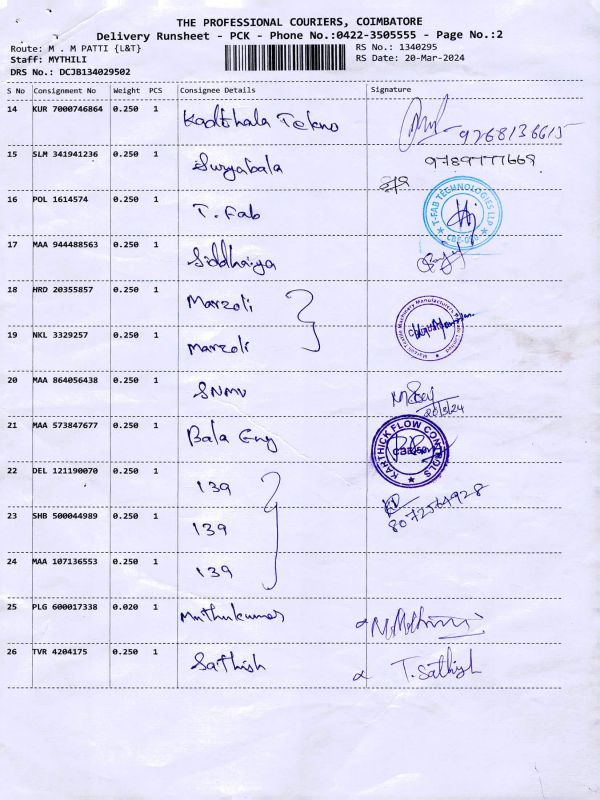 THE PROFESSIONAL COURIERS, COIMBATORE
Delivery Runsheet - PCK - Phone No.:0422-3505555 - Page No.:2
Route: M . M PATTI {L&T} RS No.: 1340295
Staff: MYTHILI RS Date: 20-Mar-2024
DRS No.: DCJB134029502
S No Consignment No Weight PCS Consignee Details Signature
14 KUR 7000746864 0.250 1 Kadthala Tekno 9268136615
15 SLM 341941236 0.250 1 Suryabala 9789777669
16 POL 1614574 0.250 1 T. Fab T-FAB TECHNOLOGIES LLP
17 MAA 944488563 0.250 1 Siddhaiya
18 HRD 20355857 0.250 1 Marzoli
19 NKL 3329257 0.250 1 Marzoli
20 MAA 864056438 0.250 1 SNMV 20/3/24
21 MAA 573847677 0.250 1 Bala Eng KARTHICK FLOW CONTROLS
22 DEL 121190070 0.250 1 139 8072564928
23 SHB 500044989 0.250 1 139
24 MAA 107136553 0.250 1 139
25 PLG 600017338 0.020 1 Muthukumar
26 TVR 4204175 0.250 1 Sathish T. Sathish